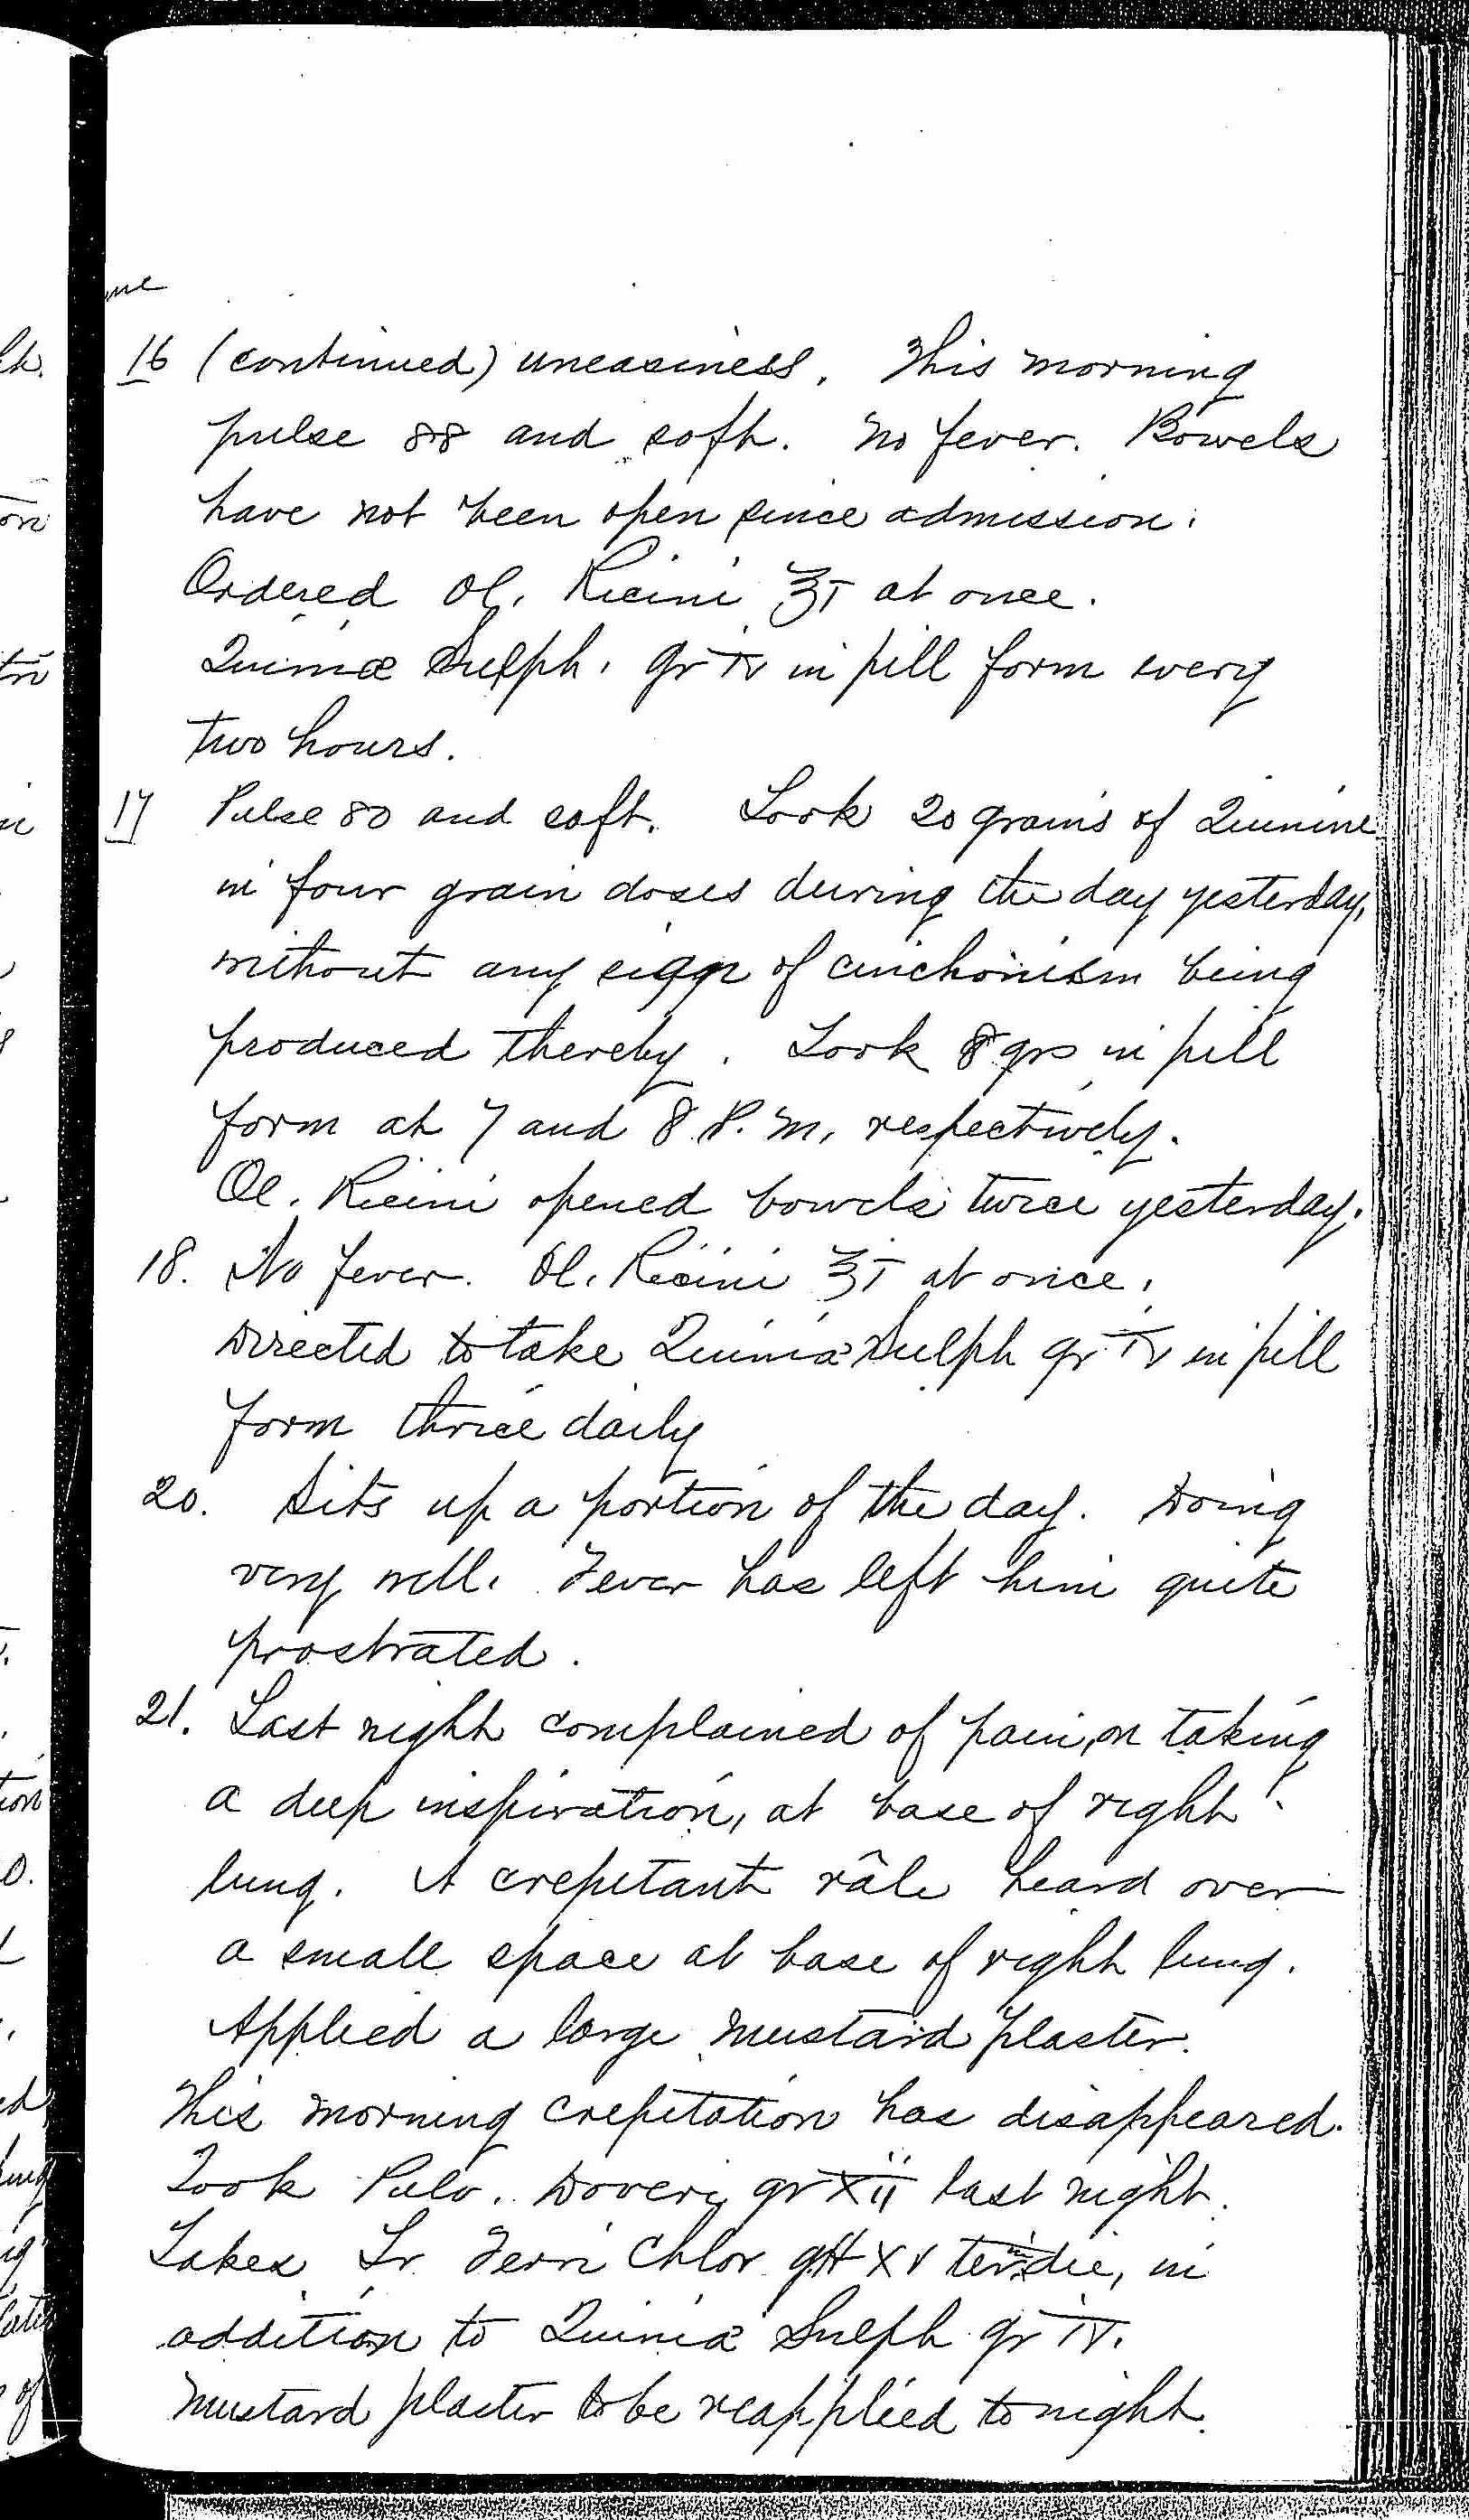 16 (continued) uneasiness. This morning
pulse 88 and soft. No fever. Bowels
have not been open since admission.
Ordered Ol. Ricini ℥i at once.
Quiniæ Sulph. gr iv in pill form every
two hours.
17 Pulse 80 and soft. Took 20 grains of Quinine
in four grain doses during the day yesterday,
without any sign of cinchonism being
produced thereby. Took 8 grs in pill
form at 7 and 8 P.M. respectively.
Ol. Ricini opened bowels twice yesterday.
18. No fever. Ol. Ricini ℥i at once.
Directed to take Quiniæ Sulph gr iv in pill
form thrice daily
20. Sits up a portion of the day. Doing
very well. Fever has left him quite
prostrated.
21. Last night complained of pain, on taking
a deep inspiration, at base of right
lung. A crepitant râle heard over
a small space at base of right lung.
Applied a large mustard plaster.
This morning crepitation has disappeared.
Took Pulv. Doveri gr xii last night.
Takes Tr. Ferri Chlor gtt xv ter in die, in
addition to Quiniæ Sulph gr iv.
Mustard plaster to be reapplied to night.